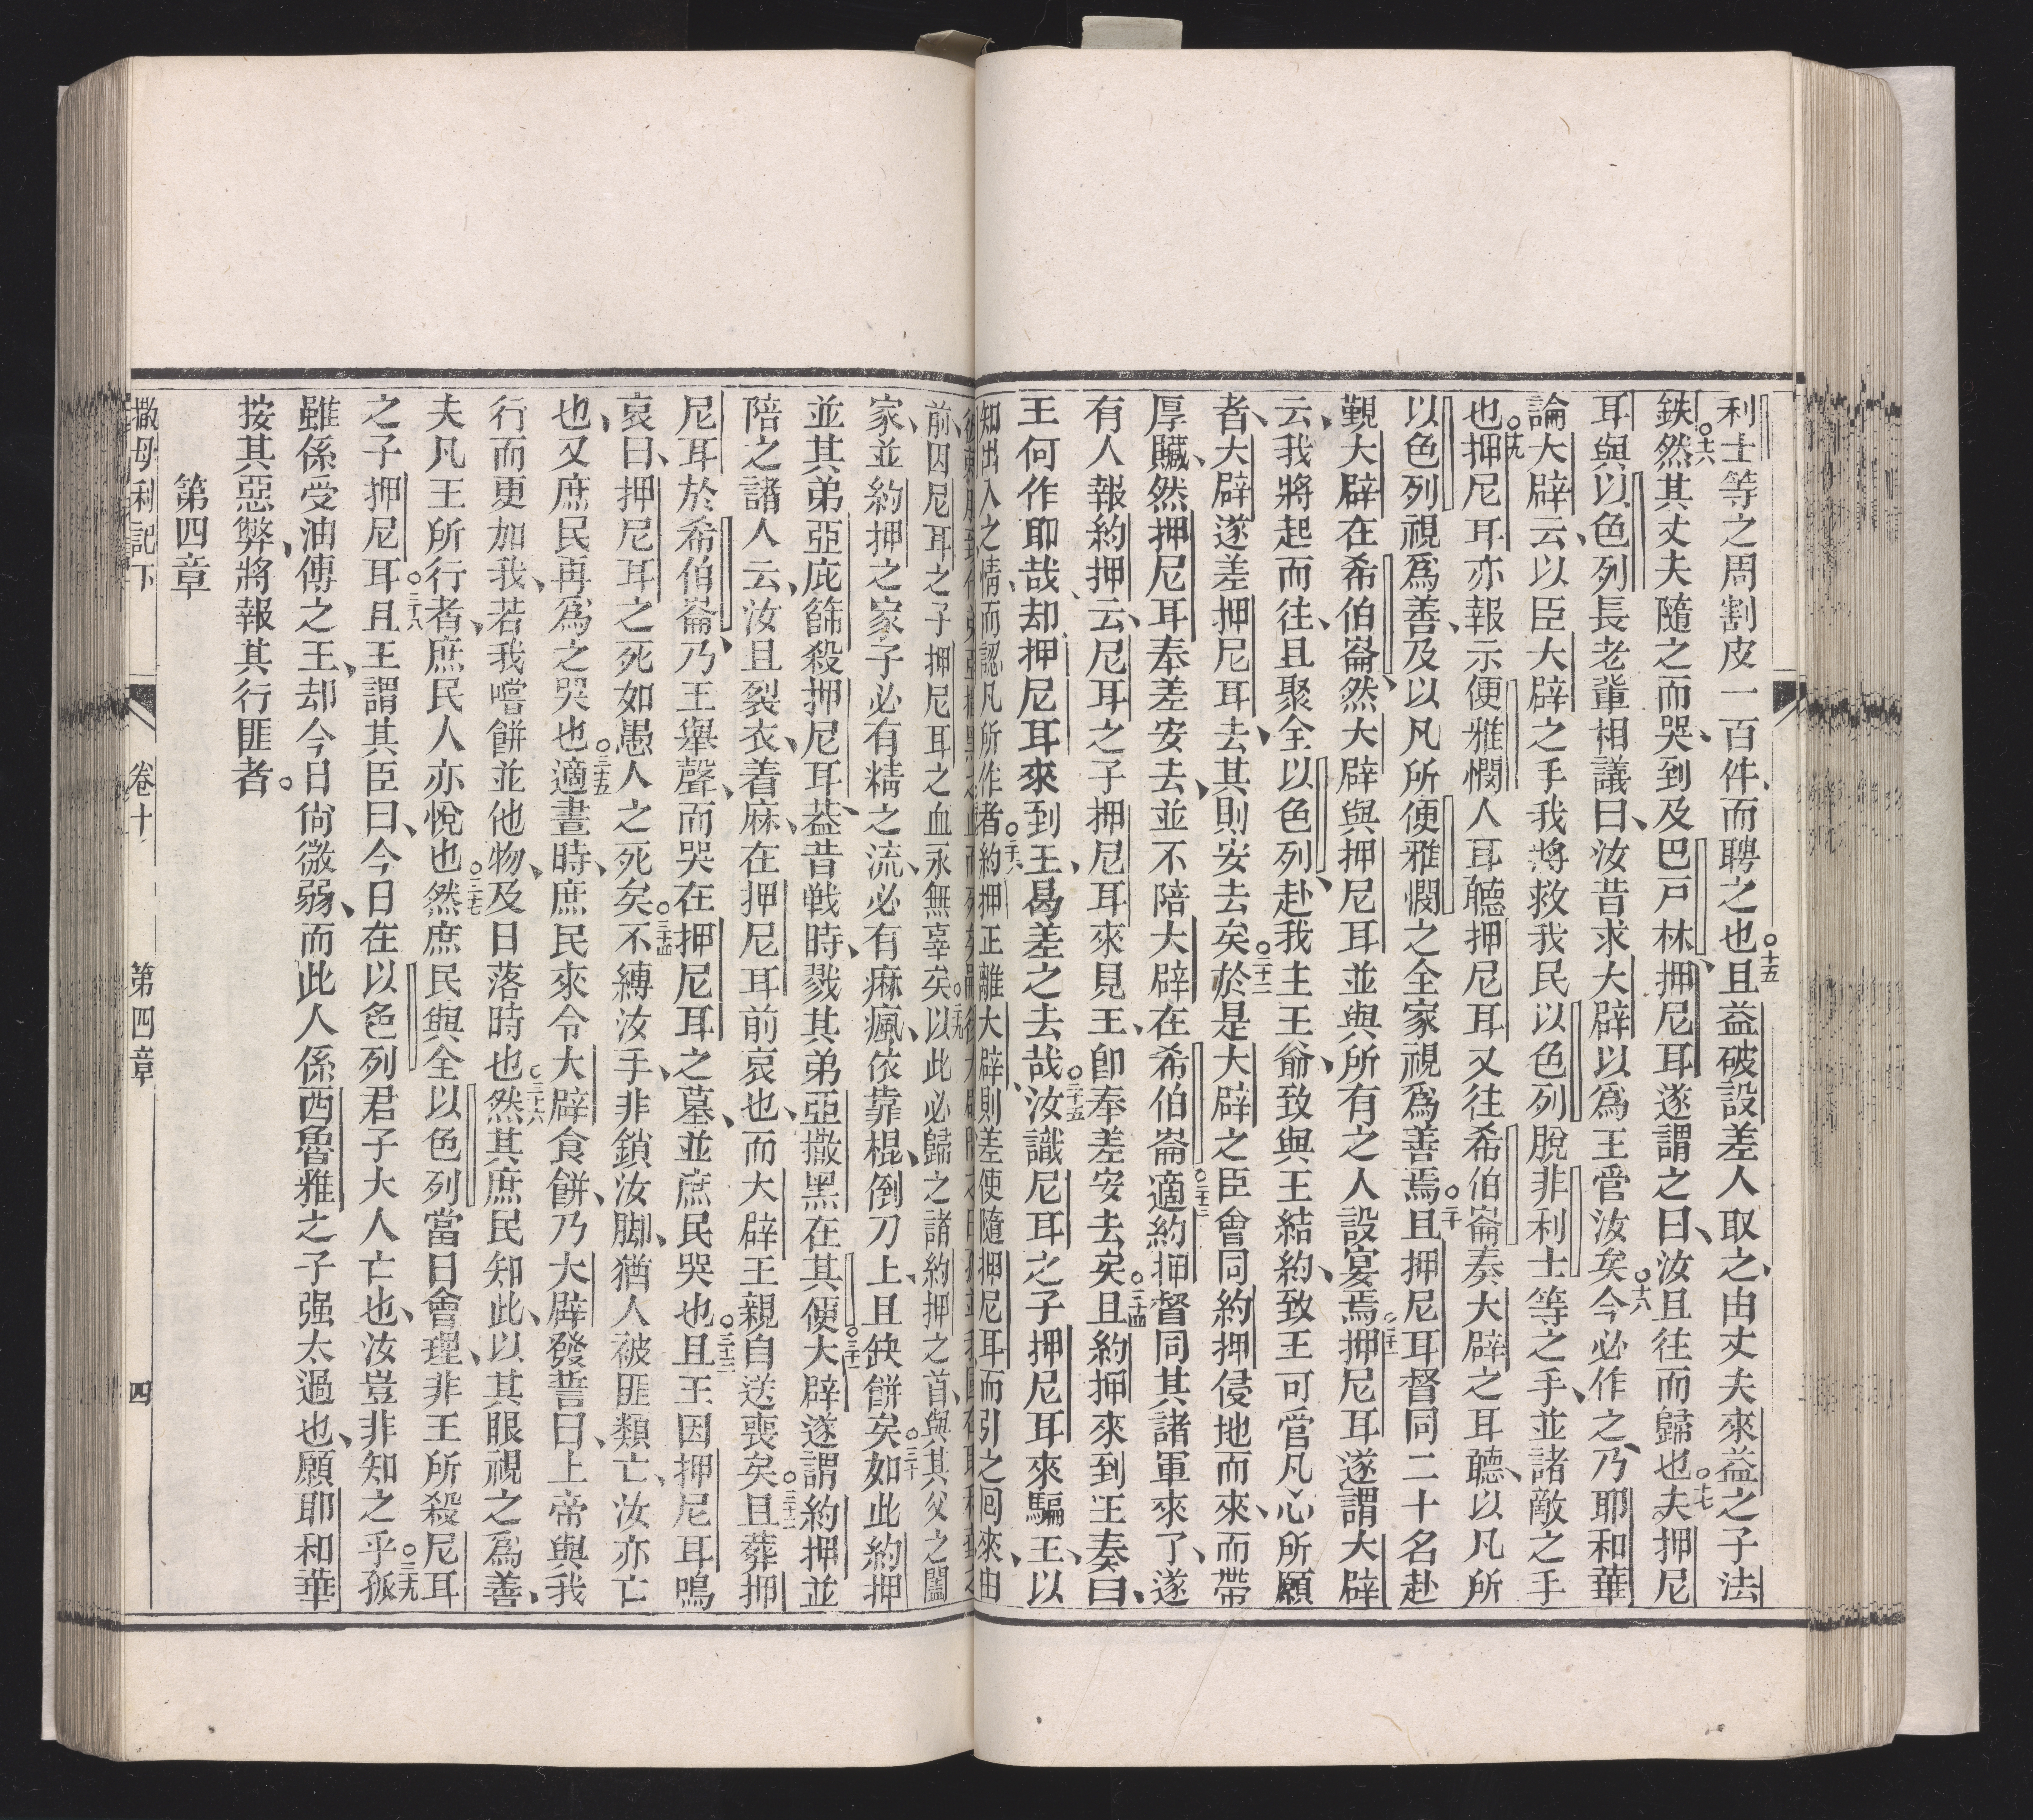 利士等之周割皮一百件、而聘之也。十五且益破設差人取之、由丈夫來益之子法
鉄。十六然其丈夫隨之而哭、到及巴戸林、押尼耳遂謂之曰、汝且往而歸也。十七夫押尼
耳與以色列長老輩相議曰、汝昔求大辟以爲王管汝矣。十八今必作之、乃耶和華
論大辟云、以臣大辟之手我將救我民以色列脫非利士等之手、並諸敵之手
也。十九押尼耳亦報示便雅憫人耳聽、押尼耳又往希伯崙奏大辟之耳聽、以凡所
以色列視爲善、及以凡所便雅憫之全家視爲善焉。二十且押尼耳督同二十名赴
覲大辟在希伯崙、然大辟與押尼耳並與所有之人設宴焉。二十一押尼耳遂謂大辟
云、我將起而往、且聚全以色列、赴我主王爺、致與王結約、致王可管凡心所願
者、大辟遂差押尼耳去、其則安去矣。二十二於是大辟之臣會同約押侵地而來、而帶
厚贜、然押尼耳奉差安去、並不陪大辟在希伯崙。二十三適約押督同其諸軍來了、遂
有人報約押云、尼耳之子押尼耳來見王、卽奉差安去矣。二十四且約押來到王奏曰、
王何作耶哉、却押尼耳來到王、曷差之去哉。二十五汝識尼耳之子押尼耳來騙王、以
知出入之情、而認凡所作者。二十六約押正離大辟、則差使隨押尼耳而引之回來、由
前、因尼耳之子押尼耳之血永無辜矣。二十九以此必歸之諸約押之首、與其父之闔
家、並約押之家子必有精之流、必有痳瘋、依靠棍、倒刀上、且缺餅矣。三十如此約押
並其弟亞庇篩殺押尼耳、葢昔戰時、戮其弟亞撒黑在其便。三十一大辟遂謂約押並
陪之諸人云、汝且裂衣、着麻、在押尼耳前哀也、而大辟王親自送喪矣。三十二且葬押
尼耳於希伯崙、乃王舉聲、而哭在押尼耳之墓、並庶民哭也。三十三且王因押尼耳鳴
哀曰、押尼耳之死如愚人之死矣。三十四不縛汝手、非鎖汝脚、猶人被匪類亡、汝亦亡
也、又庶民再爲之哭也。三十五適晝時、庶民來令大辟食餅、乃大辟發誓曰、上帝與我
行而更加我、若我嚐餅並他物、及日落時也。三十六然其庶民知此、以其眼視之爲善、
夫凡王所行者、庶民人亦悅也。三十七然庶民與全以色列當日會理、非王所殺尼耳
之子押尼耳。三十八且王謂其臣曰、今日在以色列君子大人亡也、汝豈非知之乎。三十九孤
雖係受油傅之王、却今日尙微弱、而此人係西魯雅之子强太過也、願耶和華
按其惡弊、將報其行匪者。
第四章
撒母利記下 卷十 第四章 四